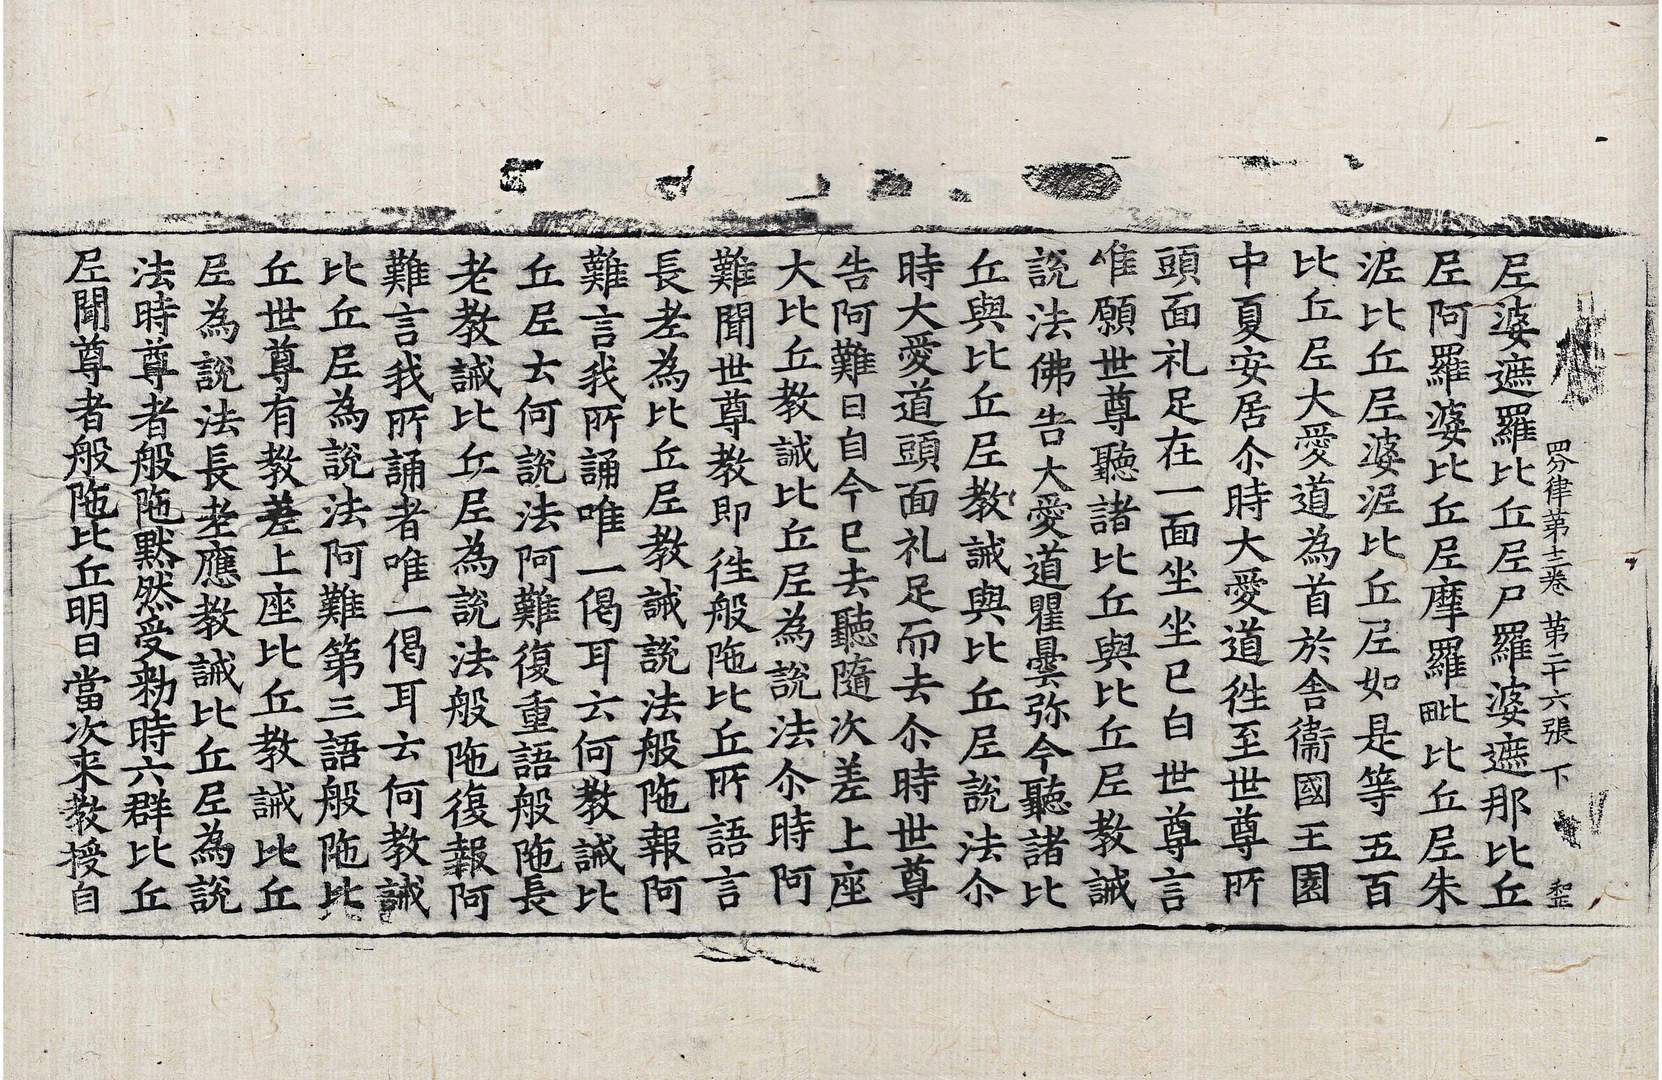 四分律第十二卷 第二十六張 下
尼婆遮羅比丘尼尸羅婆遮那比丘
尼阿羅婆比丘尼摩羅毗比丘尼朱
泥比丘尼婆泥比丘尼如是等五百
比丘尼大愛道為首於舍衛國王園
中夏安居尒時大愛道往至世尊所
頭面礼足在一面坐坐已白世尊言
唯願世尊聽諸比丘與比丘尼教誡
說法佛告大愛道瞿曇弥今聽諸比
丘與比丘尼教誡與比丘尼說法尒
時大愛道頭面礼足而去尒時世尊
告阿難曰自今已去聽隨次差上座
大比丘教誡比丘尼為說法尒時阿
難聞世尊教即往般陁比丘所語言
長老為比丘尼教誡說法般陁報阿
難言我所誦唯一偈耳云何教誡比
丘尼云何說法阿難復重語般陁長
老教誡比丘尼為說法般陁復報阿
難言我所誦者唯一偈耳云何教誡
比丘尼為說法阿難第三語般陁比
丘世尊有教差上座比丘教誡比丘
尼為說法長老應教誡比丘尼為說
法時尊者般陁黙然受勑時六群比丘
尼聞尊者般陁比丘明日當次来教授自